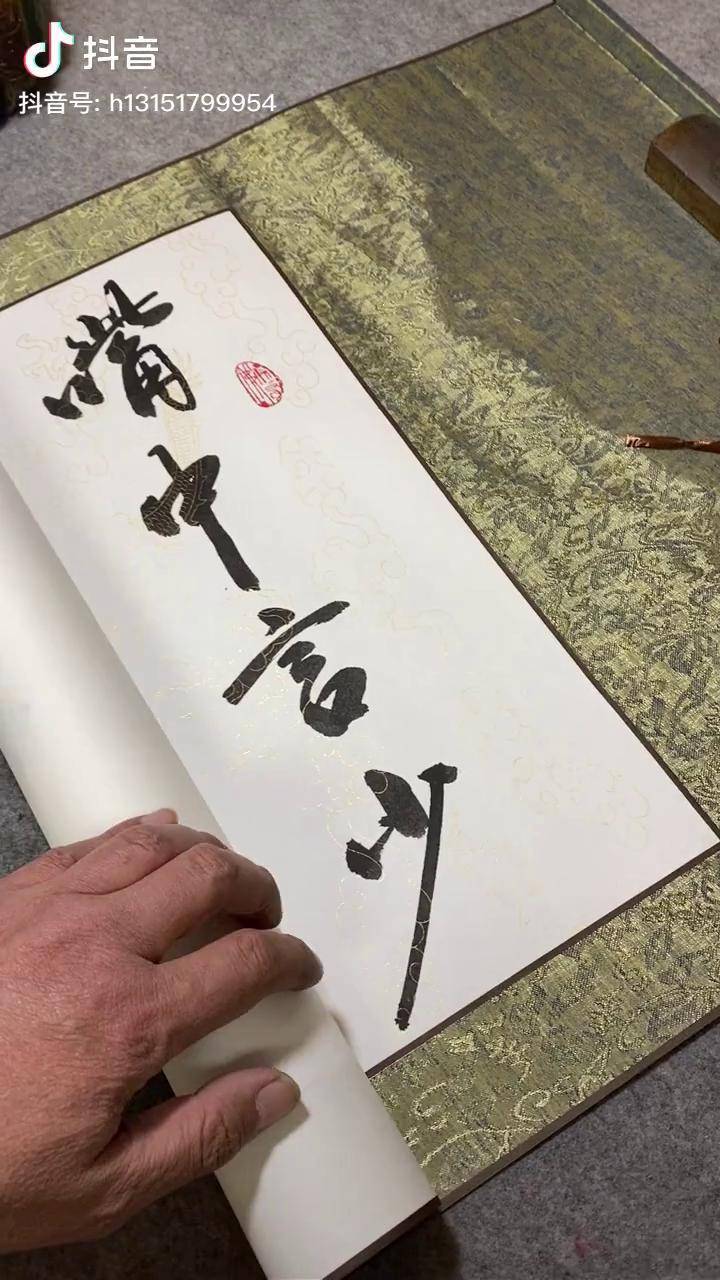 抖音
抖音号: h13151799954
嘴中言少